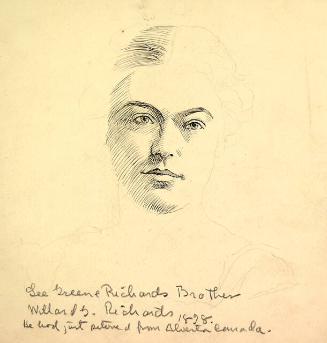 Lee Greene Richards Brother
Willard G. Richards, 1898.
He had just returned from Alberta Canada.